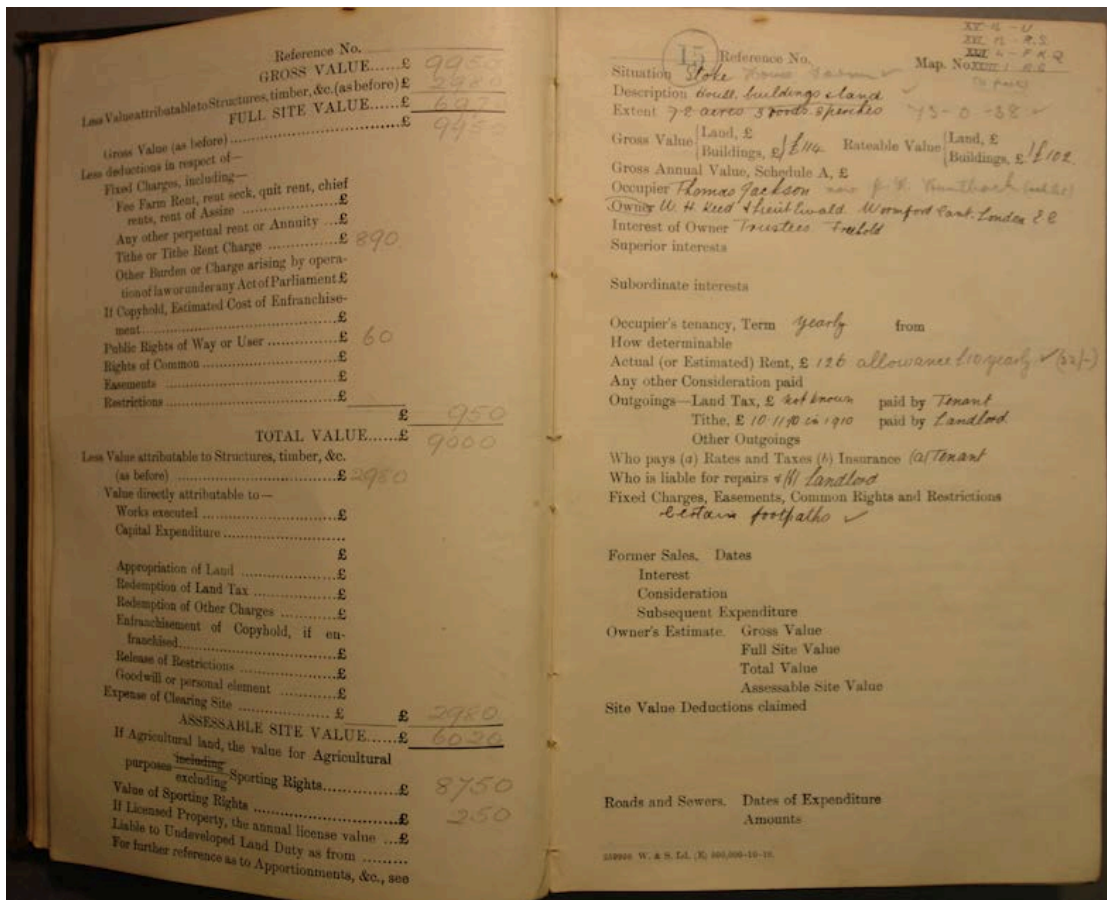 Reference No.
GROSS VALUE......£ 9950
Less Value attributable to Structures, timber, &c. (as before) £ 2980
FULL SITE VALUE......£
Gross Value (as before) ......£ 9950
Less deductions in respect of—
Fixed Charges, including—
Fee Farm Rent, rent seck, quit rent, chief
rents, rent of Assize ......£
Any other perpetual rent or Annuity ...£
Tithe or Tithe Rent Charge ......£ 890
Other Burden or Charge arising by opera-
tion of law or under any Act of Parliament £
If Copyhold, Estimated Cost of Enfranchise-
ment......£
Public Rights of Way or User ......£ 60
Rights of Common ......£
Easements ......£
Restrictions ......£
£ 950
TOTAL VALUE......£ 9000
Less Value attributable to Structures, timber, &c.
(as before) ......£ 2980
Value directly attributable to—
Works executed ......£
Capital Expenditure ......
£
Appropriation of Land ......£
Redemption of Land Tax ......£
Redemption of Other Charges ......£
Enfranchisement of Copyhold, if en-
franchised......£
Release of Restrictions ......£
Goodwill or personal element ......£
Expense of Clearing Site ......£ £ 2980
ASSESSABLE SITE VALUE......£ 6020
If Agricultural land, the value for Agricultural
purposes including
excluding Sporting Rights......£ 8750
Value of Sporting Rights ......£ 250
If Licensed Property, the annual license value ...£
Liable to Undeveloped Land Duty as from .........
For further reference as to Apportionments, &c., see
15 Reference No. Map. No.
Situation Stoke House Farm
Description House, buildings & land
Extent 72 acres 3 roods 8 perches 73-0-38
Gross Value {Land, £ {Buildings, £} £114 Rateable Value {Land, £ {Buildings, £} £102
Gross Annual Value, Schedule A, £
Occupier Thomas Jackson now
Owner W. H. Reed & Lieut Ewald. London E C
Interest of Owner Trustees Freehold
Superior interests
Subordinate interests
Occupier's tenancy, Term yearly from
How determinable
Actual (or Estimated) Rent, £ 126 allowance £10 yearly (32/-)
Any other Consideration paid
Outgoings—Land Tax, £ not known paid by Tenant
Tithe, £ 10.11.10 in 1910 paid by Landlord
Other Outgoings
Who pays (a) Rates and Taxes (b) Insurance (a) Tenant
Who is liable for repairs & (b) Landlord
Fixed Charges, Easements, Common Rights and Restrictions
Certain footpaths
Former Sales. Dates
Interest
Consideration
Subsequent Expenditure
Owner's Estimate. Gross Value
Full Site Value
Total Value
Assessable Site Value
Site Value Deductions claimed
Roads and Sewers. Dates of Expenditure
Amounts
W. & S. Ld. (E) 500,000-10-10.